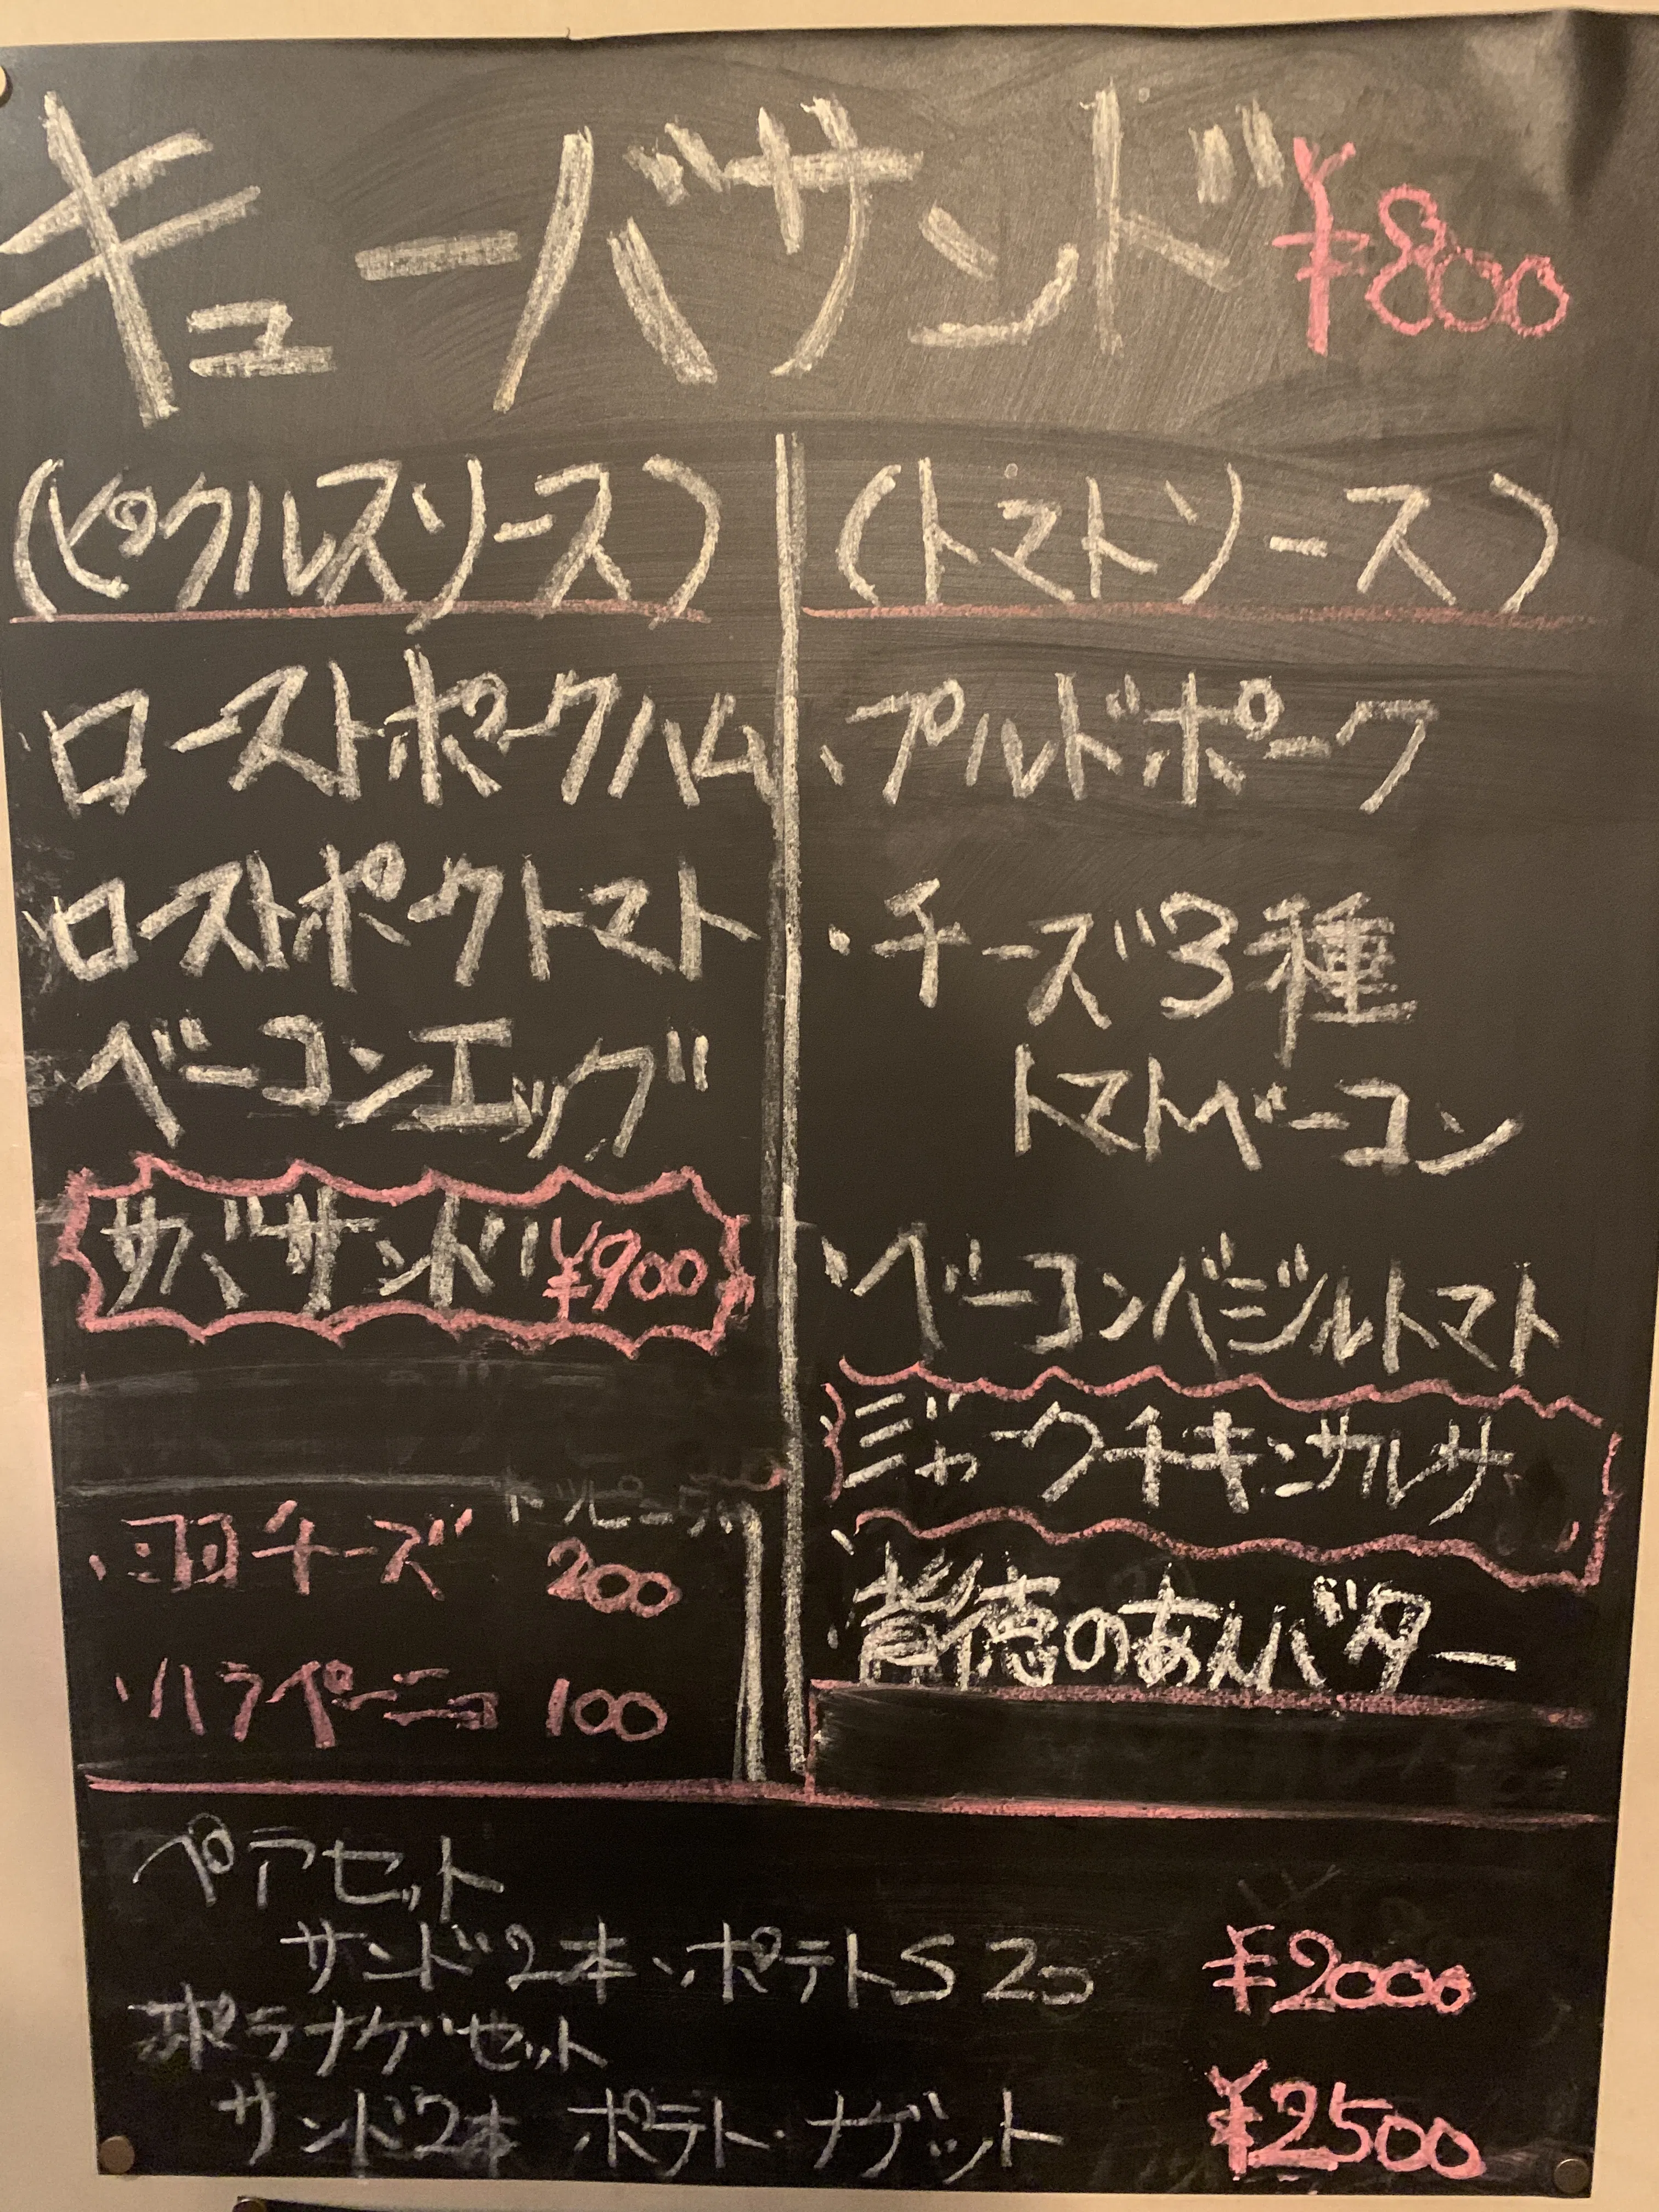 キューバサンド ¥800
(ピックルスソース)
・ローストポークハム
・ローストポークトマト
ベーコンエッグ
サバサンド ¥900
トッピング
・羽チーズ 200
・ハラペーニョ 100
(トマトソース)
・プルドポーク
・チーズ3種
トマトベーコン
・ベーコンバジルトマト
・ジャークチキンサルサ
・背徳のあんバター
ペアセット
サンド2本・ポテトS 2コ ¥2000
ポテナゲセット
サンド2本 ポテト・ナゲット ¥2500